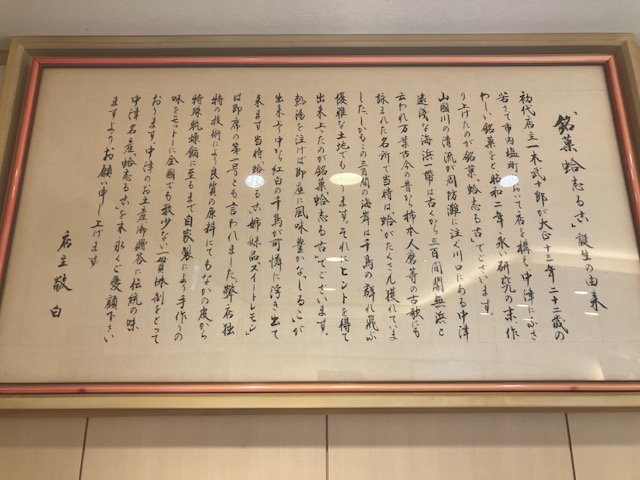 「銘菓 蛤志るこ」誕生の由来
初代店主一木武十郎が大正十三年二十二歳の
若さで市内塩町において店を構え中津にふさ
わしい銘菓をと昭和二年永い研究の末作
り上げたのが銘菓、蛤志る古でございます。
山国川の清流が周防灘に注ぐ川口にある中津
遠浅な海浜一帯は古くから三百間闇無浜と
云われ万葉古今の昔から柿本人麿等の古歌にも
詠まれた名所で当時は蛤がたくさん獲れていま
した。しかもこの三百間の海岸は千鳥の群れ飛ぶ
優雅な土地でもあります。それにヒントを得て
出来上ったのが銘菓蛤志る古でございます。
熱湯を注げば即座に風味豊かな「しるこ」が
出来上り中から紅白の千鳥が可憐に浮き出て
来ます当時蛤志る古(姉妹品スイートレモン)
は即席の第一号とも言われました。弊店独
特の技術により良質の原料にてもなかの皮から
特殊乾燥餡に至るまで自家製により手作りの
味をモットーに全国でも数少ない一貫体制をとって
おります。中津のお土産御贈答に伝統の味
中津名産蛤志る古を末永くご愛顧下さい
ますようお願い申し上げます
店主敬白